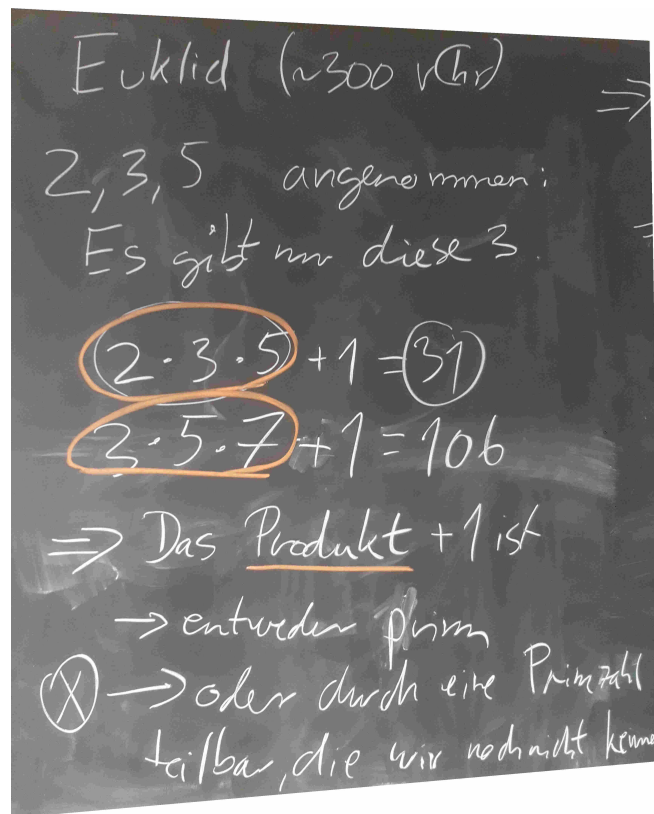 Euklid (~300 vChr)
⇒
2, 3, 5 angenommen:
Es gibt nur diese 3.
(2 · 3 · 5) + 1 = 31
3 · 5 · 7 + 1 = 106
⇒ Das Produkt + 1 ist
→ entweder prim
X → oder durch eine Primzahl
teilbar, die wir noch nicht kenne